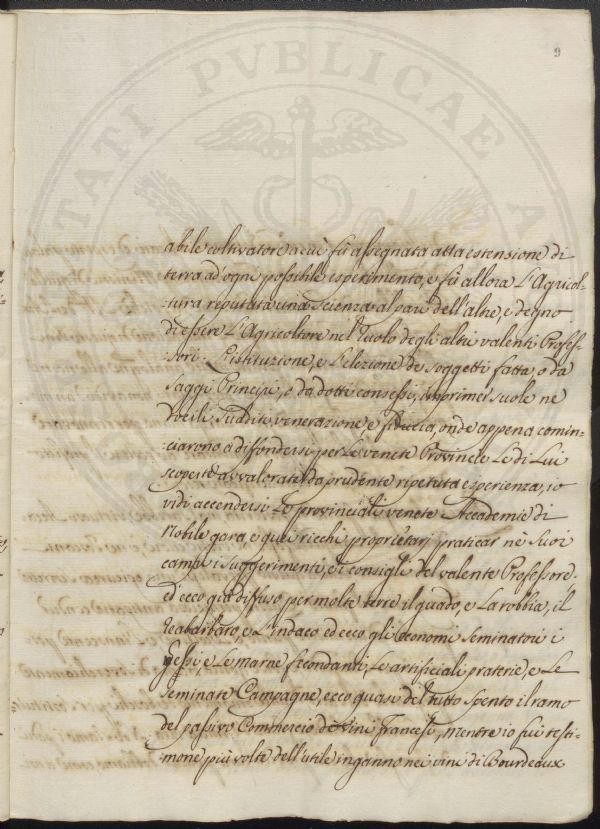 9
abile coltivatore a cui fù assegnata atta estensione di
terra ad ogni possibile esperimento, e fù allora l'Agricol-
-tura reputata una scienza al pari dell'altre, e degno
di essere l'Agricoltore nel Ruolo degli altri valenti Profes-
-sori. L'istituzione, e l'elezione de soggetti fatta, o da
saggi Principi, o da dotti consessi, imprimer suole nè
docili sudditi venerazione, e fiducia, onde appena comin-
-ciarono a diffondersi per le venete Provincie le di Lui
scoperte avvalorate da prudente ripetuta esperienza, io
vidi accendersi le provinciali venete Accademie di
Nobile gara, e quei ricchi proprietarj praticar nè suoi
campi i suggerimenti, e i consigli del valente Professore,
ed ecco già diffuso per molte terre il guado, e la robbia, il
Reabarbaro, e l'indaco ed ecco gli economi seminatori i
gessi, e le marne fecondanti, le artificiali praterie, e le
seminate Campagne, ecco quasi del tutto spento il ramo
del passivo Commercio de vini Francesi, mentre io fui testi-
-mone più volte dell'utile inganno nei vini di Bourdeaux
TATI PVBLICAE